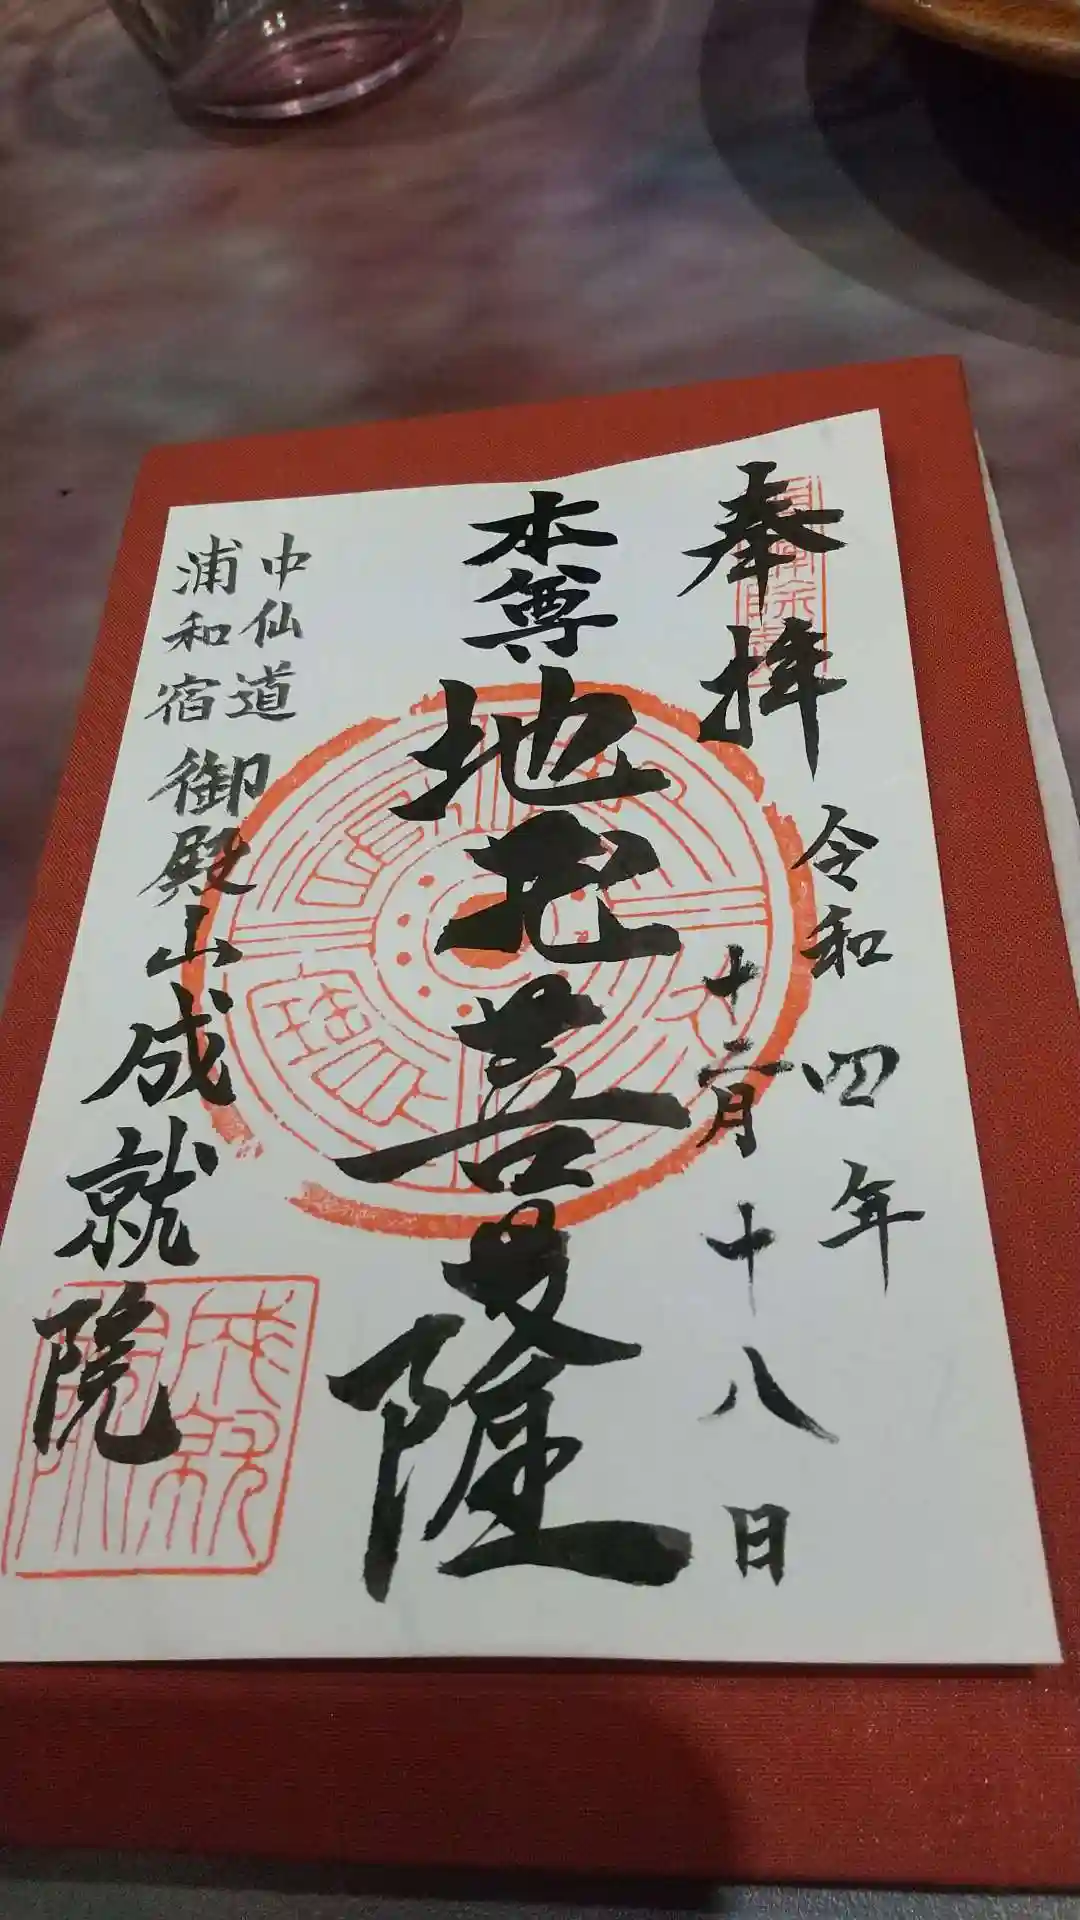 奉拝
令和四年
十二月十八日
本尊
地蔵菩薩
中仙道
浦和宿
御殿山成就院
成就